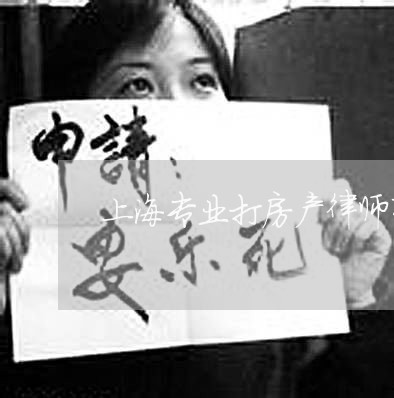 申請：
上海专业打房产律师
安乐死